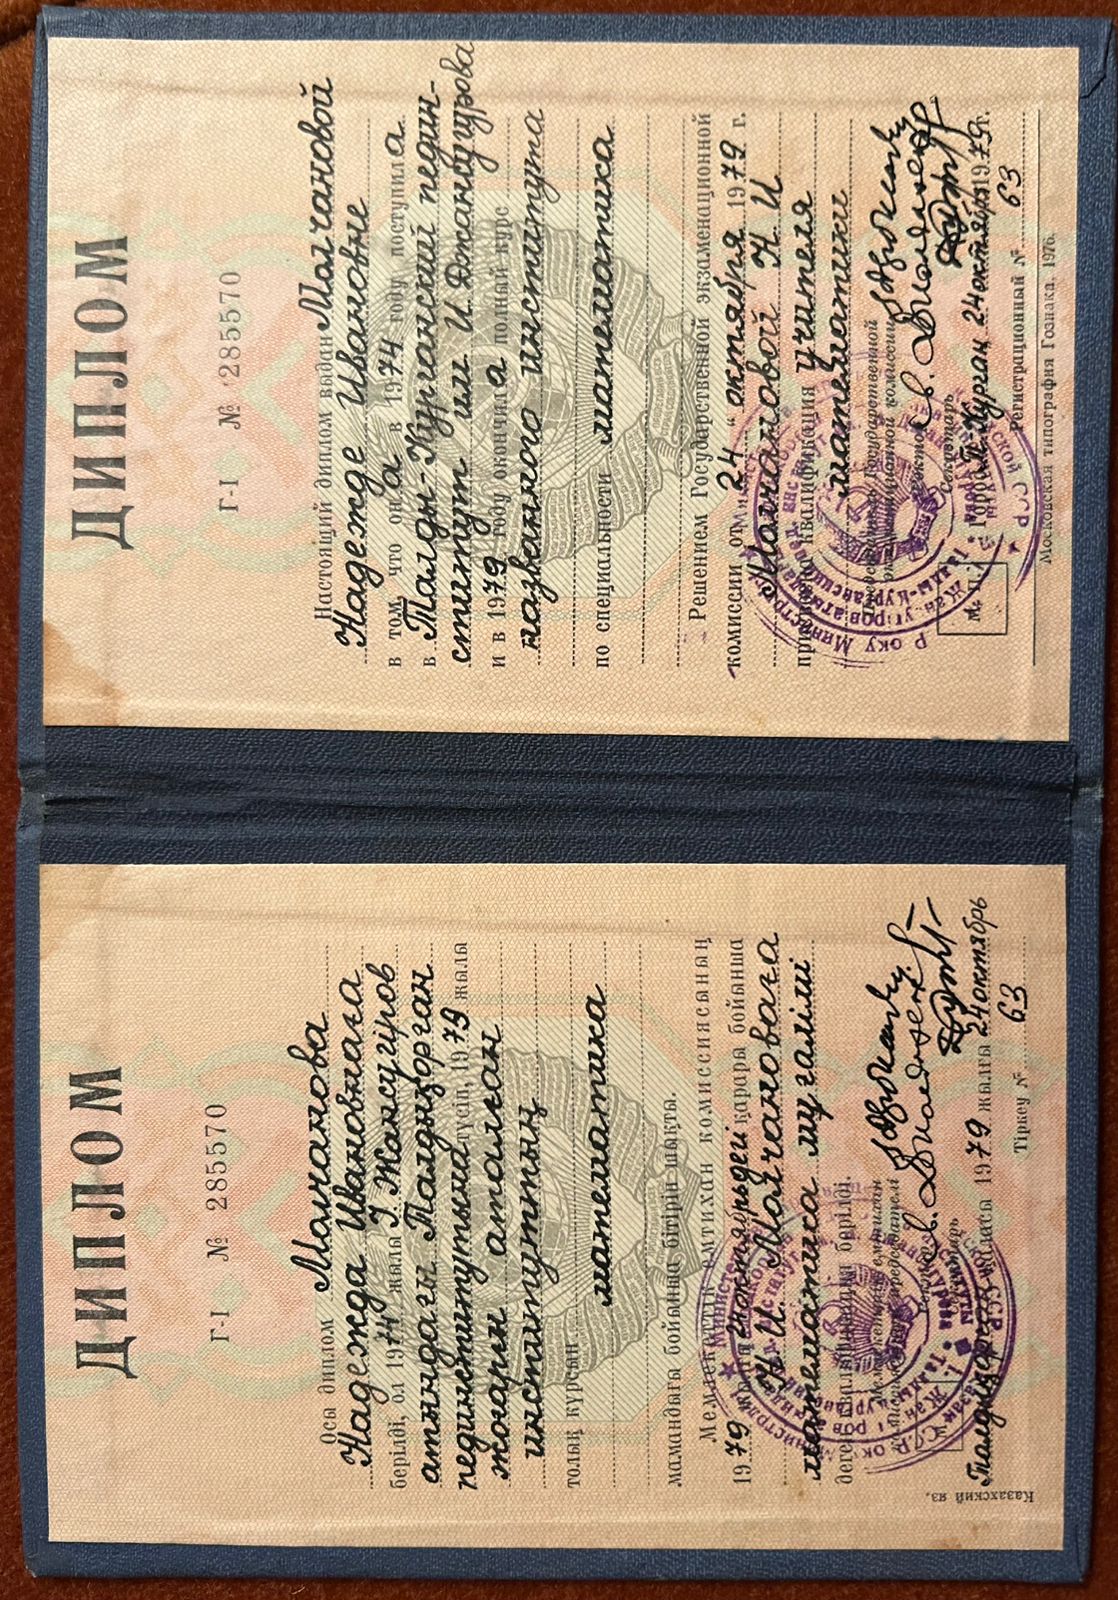 ДИПЛОМ
Г-I № 285570
Осы диплом Молчанова
Надежда Ивановнаға
берілді, ол 1974 жылы І. Жансүгіров
атындағы Талдықорған
пединститутына түсіп, 1979 жылы
жоғары аталған
институттың
толық курсын
математика
мамандығы бойынша бітіріп шықты.
Мемлекеттік емтихан комиссиясының
1979 жылғы 24 октябрьдегі қарары бойынша
Н. И. Молчановаға
математика мұғалімі
деген квалификация берілді.
Мемлекеттік емтихан
комиссиясының председателі
Ректор
Секретарь
М. О.
Талдықорған қаласы 1979 жылғы 24 октябрь
Тіркеу № 63
Казахский яз.
ДИПЛОМ
Г-I № 285570
Настоящий диплом выдан Молчановой
Надежде Ивановне
в том, что она в 1974 году поступила
в Талды-Курганский педин-
ститут им И Джансугурова
и в 1979 году окончила полный курс
названного института
по специальности математика
Решением Государственной экзаменационной
комиссии от „24“ октября 1979 г.
Молчановой Н И
присвоена квалификация учителя
математики
Председатель Государственной
экзаменационной комиссии
Ректор
Секретарь
М. П.
Город Т-Курган 24 октября 1979 г.
Регистрационный № 63
Московская типография Гознака. 1976.